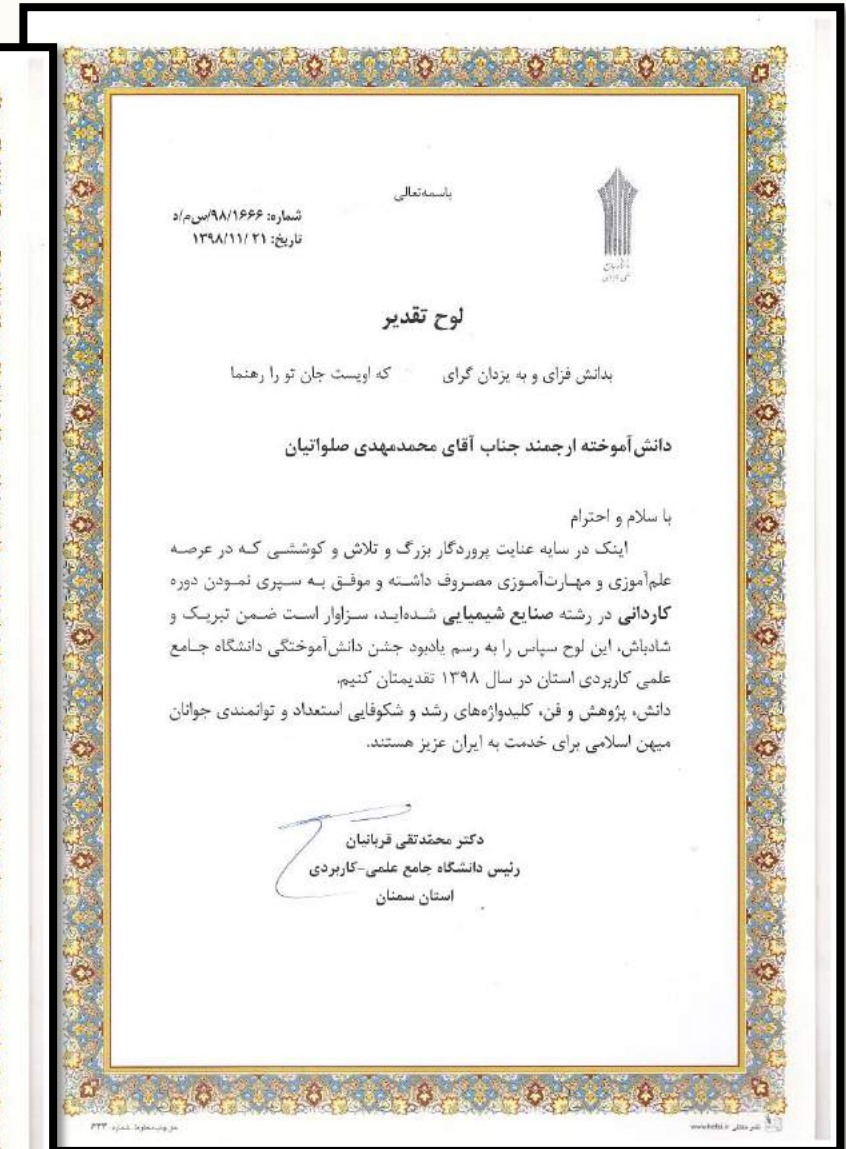 باسمه‌تعالی
شماره: ۹۸/۱۶۶۶/س‌م/د
تاریخ: ۱۳۹۸/۱۱/۲۱
لوح تقدیر
بدانش فزای و به یزدان گرای که اویست جان تو را رهنما
دانش‌آموخته ارجمند جناب آقای محمدمهدی صلواتیان
با سلام و احترام
اینک در سایه عنایت پروردگار بزرگ و تلاش و کوششی که در عرصه
علم‌آموزی و مهارت‌آموزی مصروف داشته و موفق به سپری نمودن دوره
کاردانی در رشته صنایع شیمیایی شده‌اید، سزاوار است ضمن تبریک و
شادباش، این لوح سپاس را به رسم یادبود جشن دانش‌آموختگی دانشگاه جامع
علمی کاربردی استان در سال ۱۳۹۸ تقدیمتان کنیم.
دانش، پژوهش و فن، کلیدواژه‌های رشد و شکوفایی استعداد و توانمندی جوانان
میهن اسلامی برای خدمت به ایران عزیز هستند.
دکتر محمّدتقی قربانیان
رئیس دانشگاه جامع علمی-کاربردی
استان سمنان